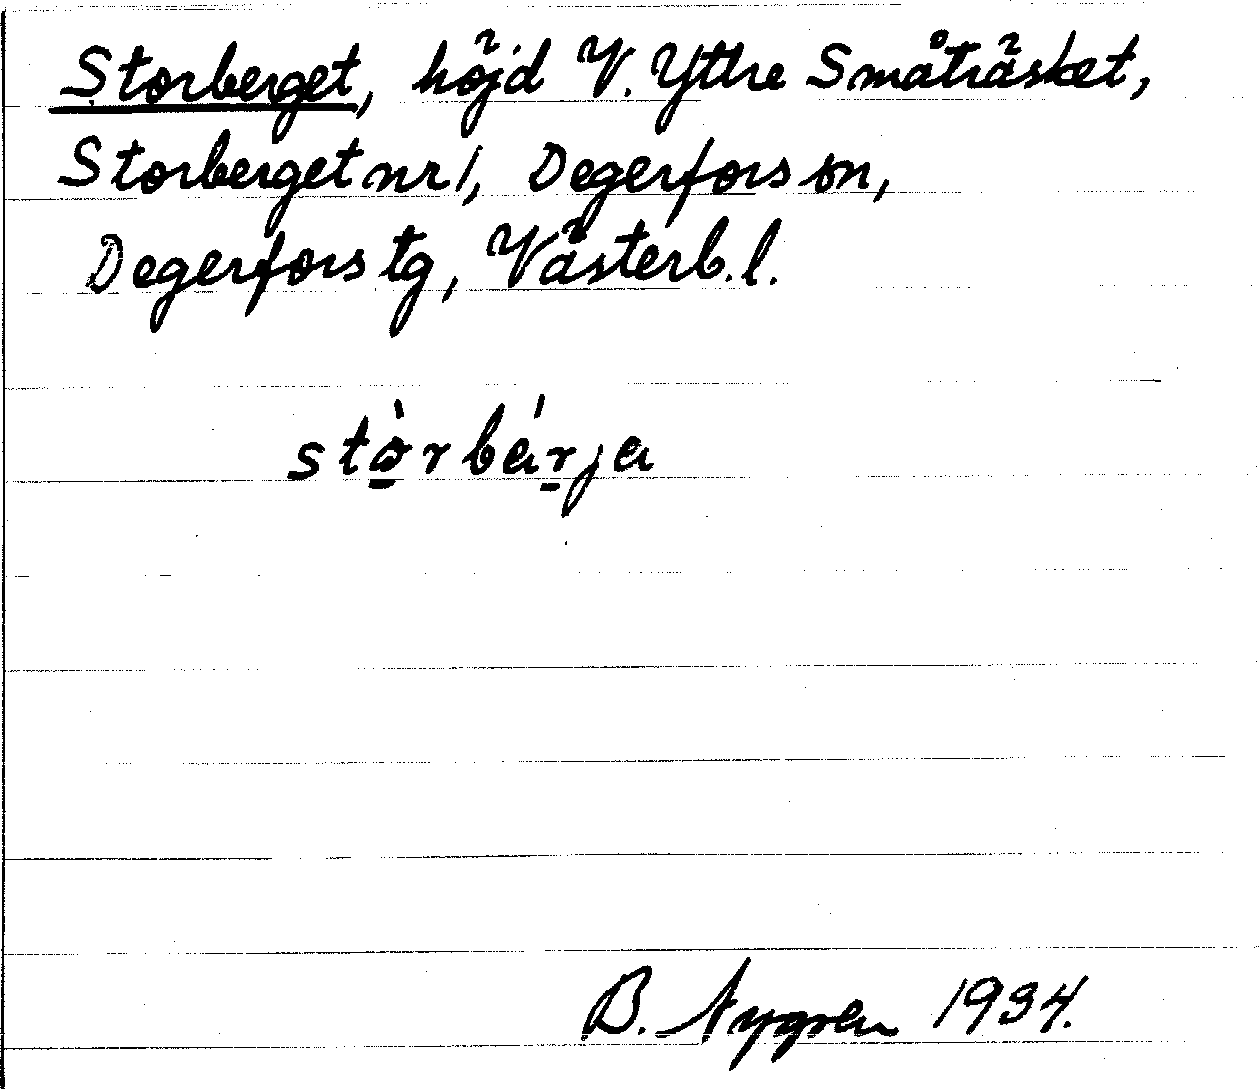 Storberget, höjd V. Yttre Småträsket,
Storberget nr 1, Degerfors sn,
Degerfors tg, Västerb. l.
stò̱rbáṟja
B. Nygren 1934.